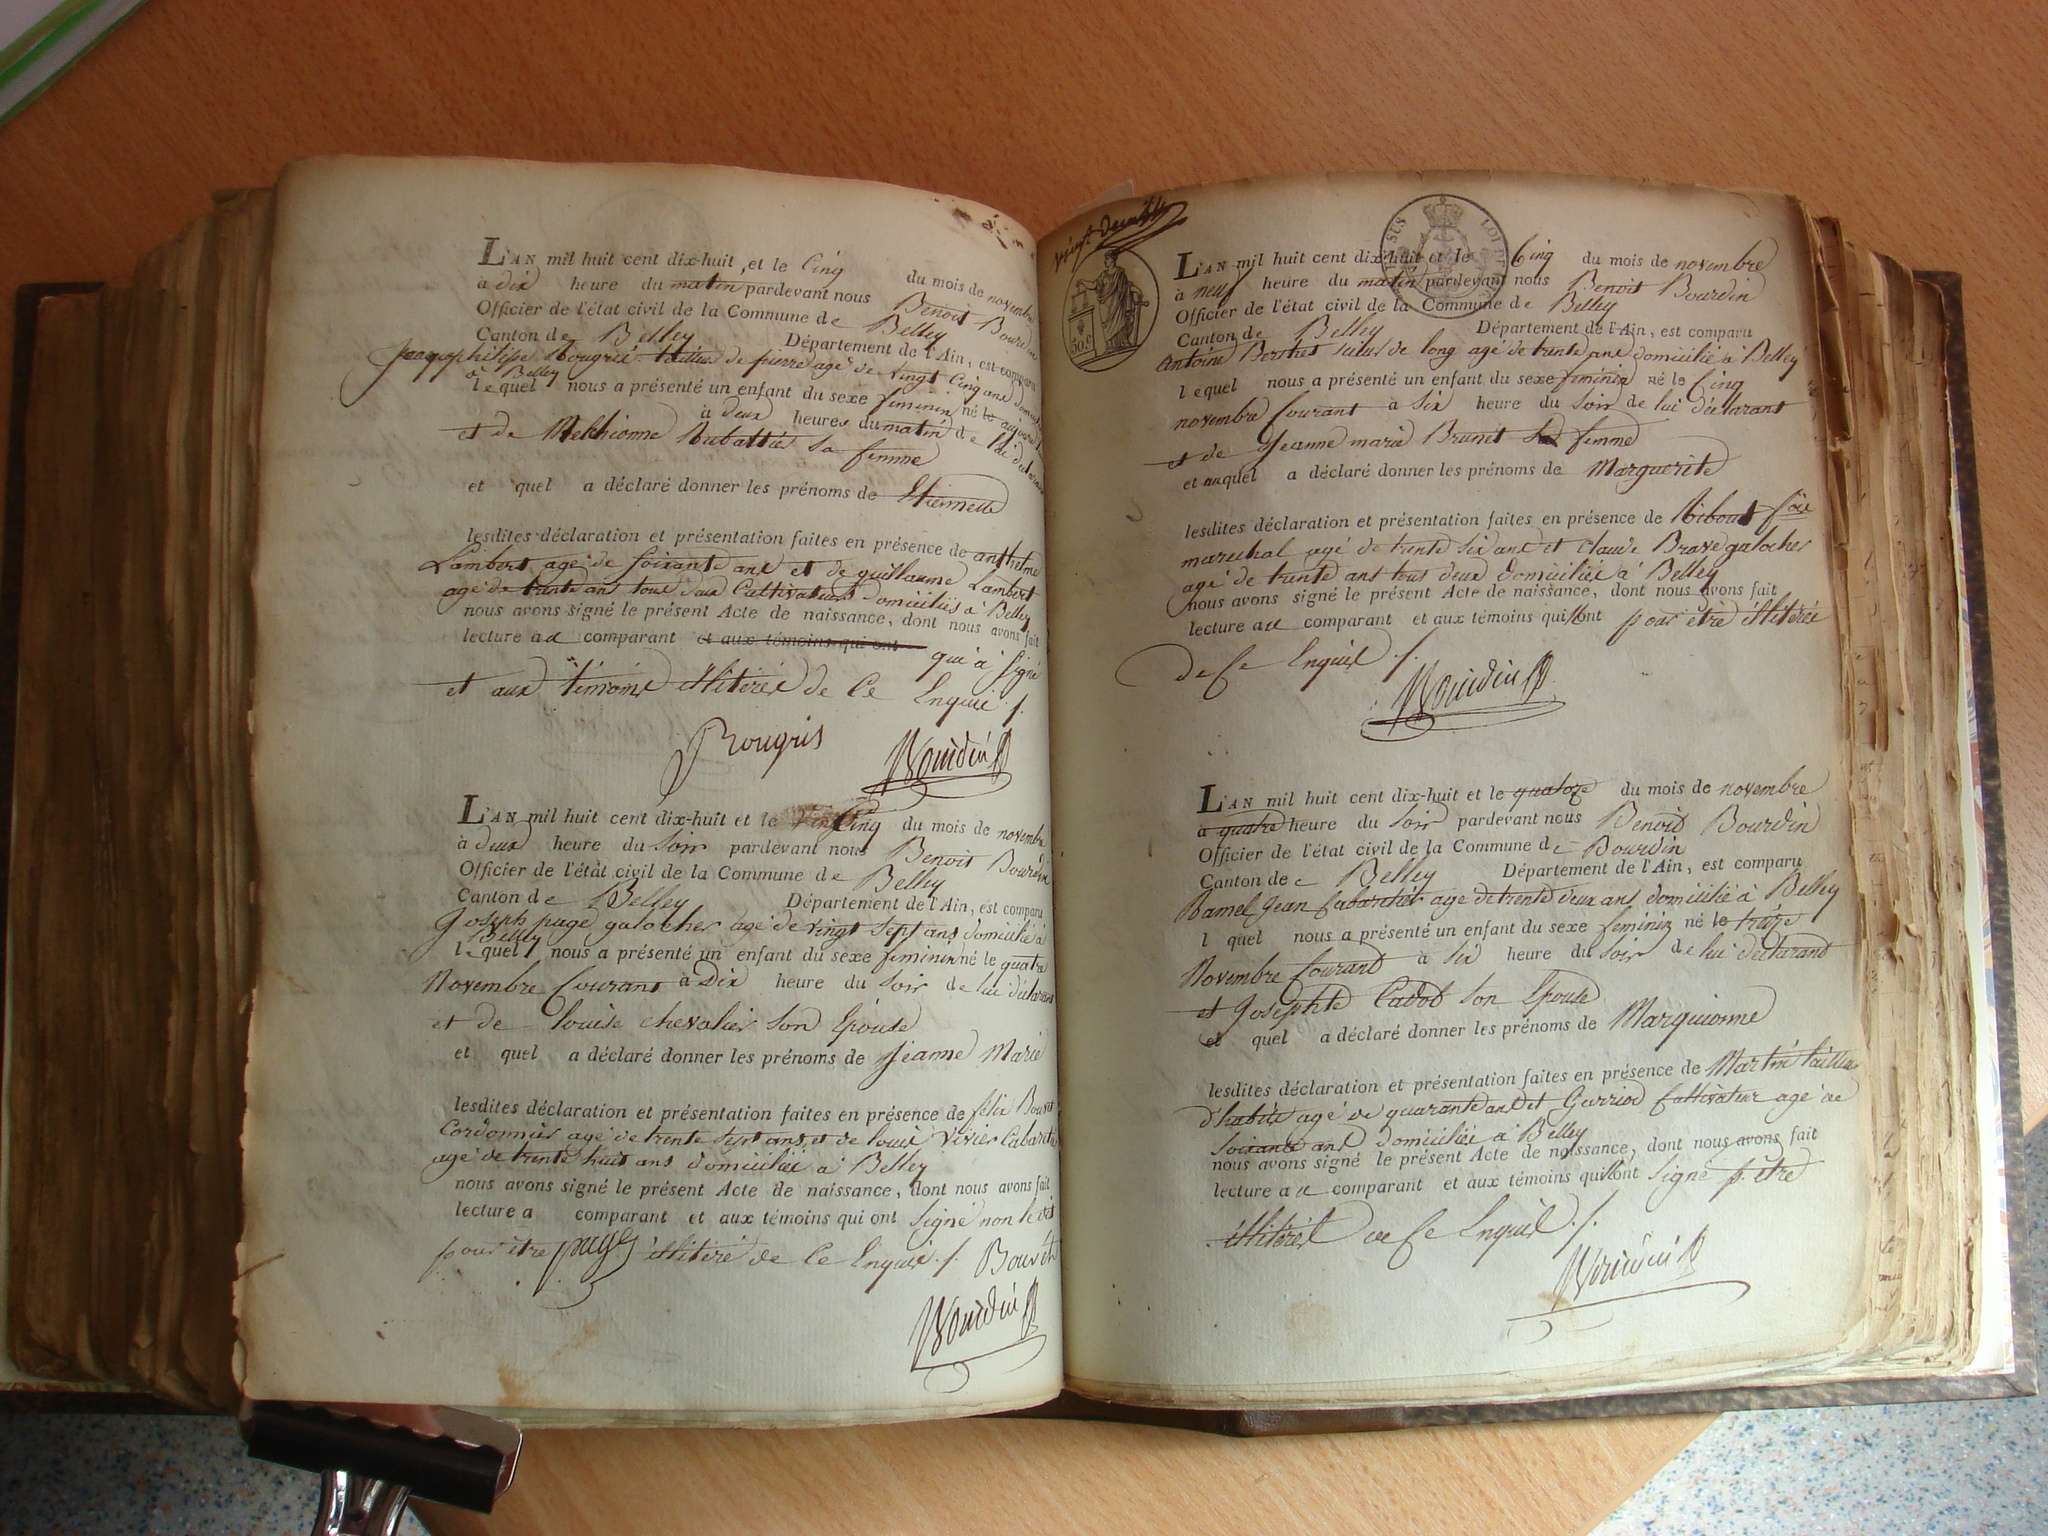 L'AN mil huit cent dix-huit, et le Cinq du mois de novembre
à dix heure du matin pardevant nous Benoit Bourdin
Officier de l'état civil de la Commune de Belley
Canton de Belley Département de l'Ain, est comparu
philippe Rougris tailleur de pierre agé de vingt Cinq ans
à Belley
lequel nous a présenté un enfant du sexe feminin né le
à deux heures du matin de
et de Melkionne Rubattié sa femme
et quel a déclaré donner les prénoms de Etiennette
lesdites déclaration et présentation faites en présence de anthelme
Lambert agé de soixante ans et de guillaume Lambert
agé de trente ans tous deux Cultivateurs domiciliés à Belley
nous avons signé le présent Acte de naissance, dont nous avons fait
lecture au comparant et aux témoins qui ont qui à signé
et aux témoins illitérés de Ce Enquis ./.
Rougris Bourdin
L'AN mil huit cent dix-huit et le Cinq du mois de novembre
à deux heure du Soir pardevant nous Benoit Bourdin
Officier de l'état civil de la Commune de Belley
Canton de Belley Département de l'Ain, est comparu
Joseph page galocher agé de vingt sept ans domicilié à
Belley
lequel nous a présenté un enfant du sexe feminin né le quatre
Novembre Courant à Dix heure du Soir de lui déclarant
et de louise chevalier son Epouse
et quel a déclaré donner les prénoms de Jeanne Marie
lesdites déclaration et présentation faites en présence de félix Bouvet
Cordonnier agé de trente sept ans, et de louis vivier Cabaretier
agé de trente huit ans domiciliés à Belley
nous avons signé le présent Acte de naissance, dont nous avons fait
lecture a comparant et aux témoins qui ont signé non le
pour être illitéré de Ce Enquis ./. Bouvet
page
Bourdin
50 c
L'AN mil huit cent dix-huit et le Cinq du mois de novembre
à neuf heure du matin pardevant nous Benoit Bourdin
Officier de l'état civil de la Commune de Belley
Canton de Belley Département de l'Ain, est comparu
Antoine Berthet scieur de long agé de trente ans domicilié à Belley
lequel nous a présenté un enfant du sexe feminin né le Cinq
novembre Courant à six heure du Soir de lui déclarant
et de Jeanne marie Brunet sa femme
et auquel a déclaré donner les prénoms de Marguerite
lesdites déclaration et présentation faites en présence de Riboud
marechal agé de trente six ans et Claude Brave galocher
agé de trente ans tous deux domiciliés à Belley
nous avons signé le présent Acte de naissance, dont nous avons fait
lecture au comparant et aux témoins qui ont pour être illitérés
de Ce Enquis ./.
Bourdin
L'AN mil huit cent dix-huit et le quatorze du mois de novembre
à quatre heure du Soir pardevant nous Benoit Bourdin
Officier de l'état civil de la Commune de Bourdin
Canton de Belley Département de l'Ain, est comparu
Ramel Jean Cabaretier agé de trente deux ans domicilié à Belley
l quel nous a présenté un enfant du sexe feminin né le treize
Novembre Courant à six heure du Soir de lui déclarant
et Josephte Cadot son Epouse
et quel a déclaré donner les prénoms de Marguionne
lesdites déclaration et présentation faites en présence de Martin tailleur
d'habits agé de quarante ans et Gurriod Cultivateur agé de
Soixante ans domiciliés à Belley
nous avons signé le présent Acte de naissance, dont nous avons fait
lecture au comparant et aux témoins qui ont signé p. être
illitérés de Ce Enquis ./.
Bourdin